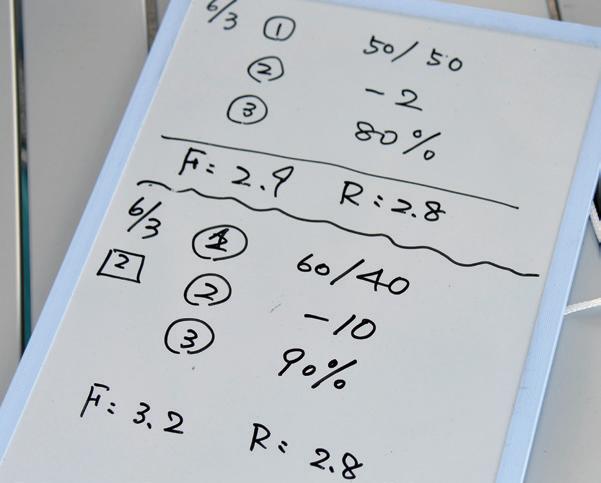 6/3 ① 50/50
② -2
③ 80%
F: 2.9 R: 2.8
6/3 ① 60/40
2 ② -10
③ 90%
F: 3.2 R: 2.8